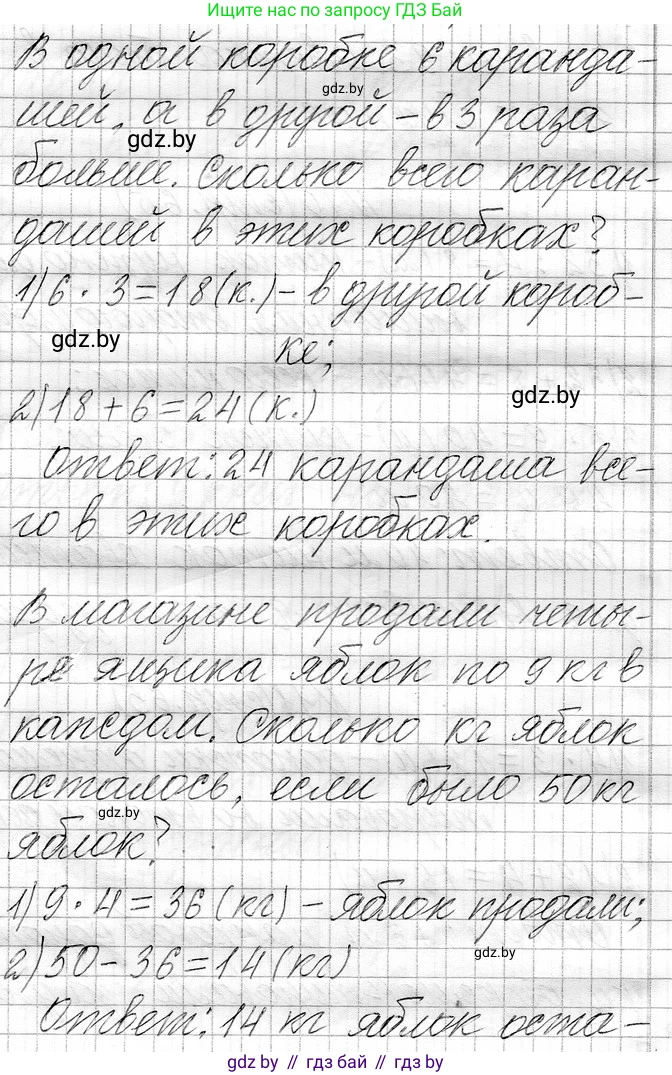 Ищите нас по запросу ГДЗ Бай
В одной коробке 6 каранда-
шей, а в другой – в 3 раза
gdz.by
gdz.by
больше. Сколько всего каран-
дашей в этих коробках?
1) 6 · 3 = 18 (к.) – в другой короб-
gdz.by
ке;
gdz.by
2) 18 + 6 = 24 (к.)
Ответ: 24 карандаша все-
го в этих коробках.
В магазине продали четы-
ре ящика яблок по 9 кг в
каждом. Сколько кг яблок
осталось, если было 50 кг
gdz.by
яблок?
1) 9 · 4 = 36 (кг) – яблок продали;
gdz.by
2) 50 – 36 = 14 (кг)
Ответ: 14 кг яблок оста-
gdz.by // гдз бай // gdz.by